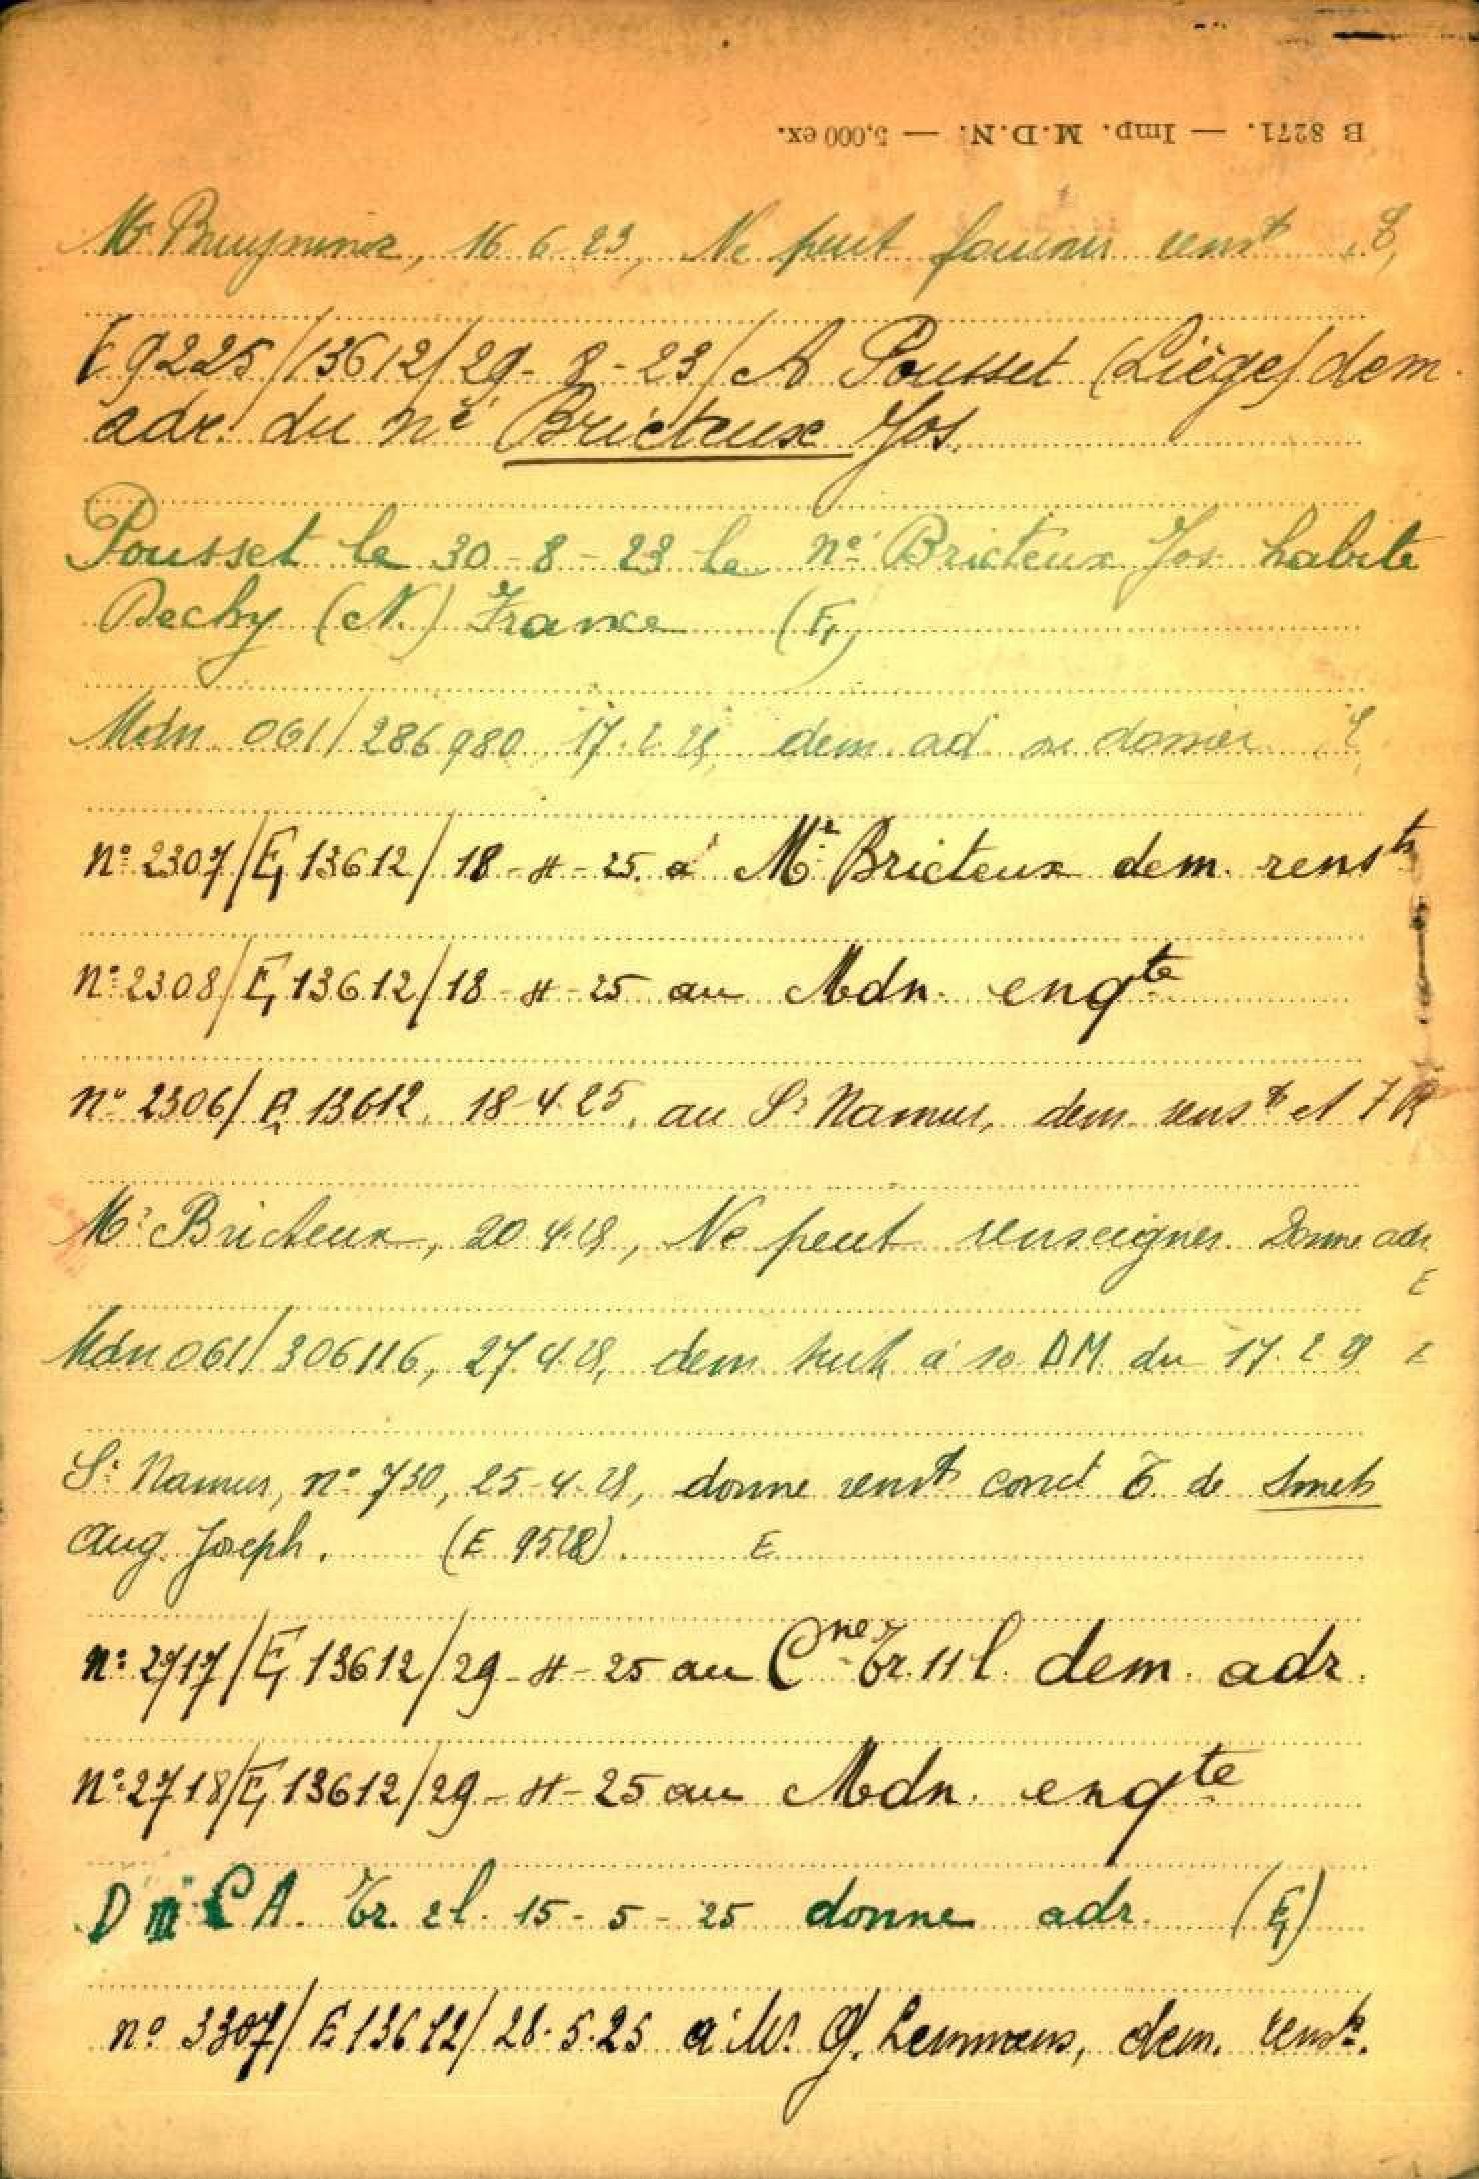 B 8271. — Imp. M.D.N. — 5,000 ex.
Mr 16.6.23, Ne peut fournir renste
E 9225/13612/29-8-23/ A Pousset (Liège) dem.
adr. du né Bricteux Jos.
Pousset le 30-8-23 le né Bricteux Jos habite
Dechy (N.) France (E1)
Mdn 061/286980, 17.2.25, dem ad dossier E
nº 2307/E1 13612/18-4-25 à Mr Bricteux dem. rensts
nº 2308/E1 13612/18-4-25 au Mdn. enqte
nº 2306/E1 13612, 18-4-25, au Sr Namur, dem renst et
Mr Bricteux, 20.4.25, Ne peut renseigner. Donne adr.
E
Mdn 061/306116, 27.4.25, dem à sa DM du 17.2.25 E
Sr Namur, nº 730, 25-4.25, donne renst de Smets
Aug. Joseph. E
nº 2717/E1 13612/29-4-25 au Cne Tr. 11 l. dem. adr.
nº 2718/E1 13612/29-4-25 au Mdn. enqte
15-5-25 donne adr. (E1)
nº 3307/E 13612/28.5.25 à Mr. G. Lemmens, dem. renste.